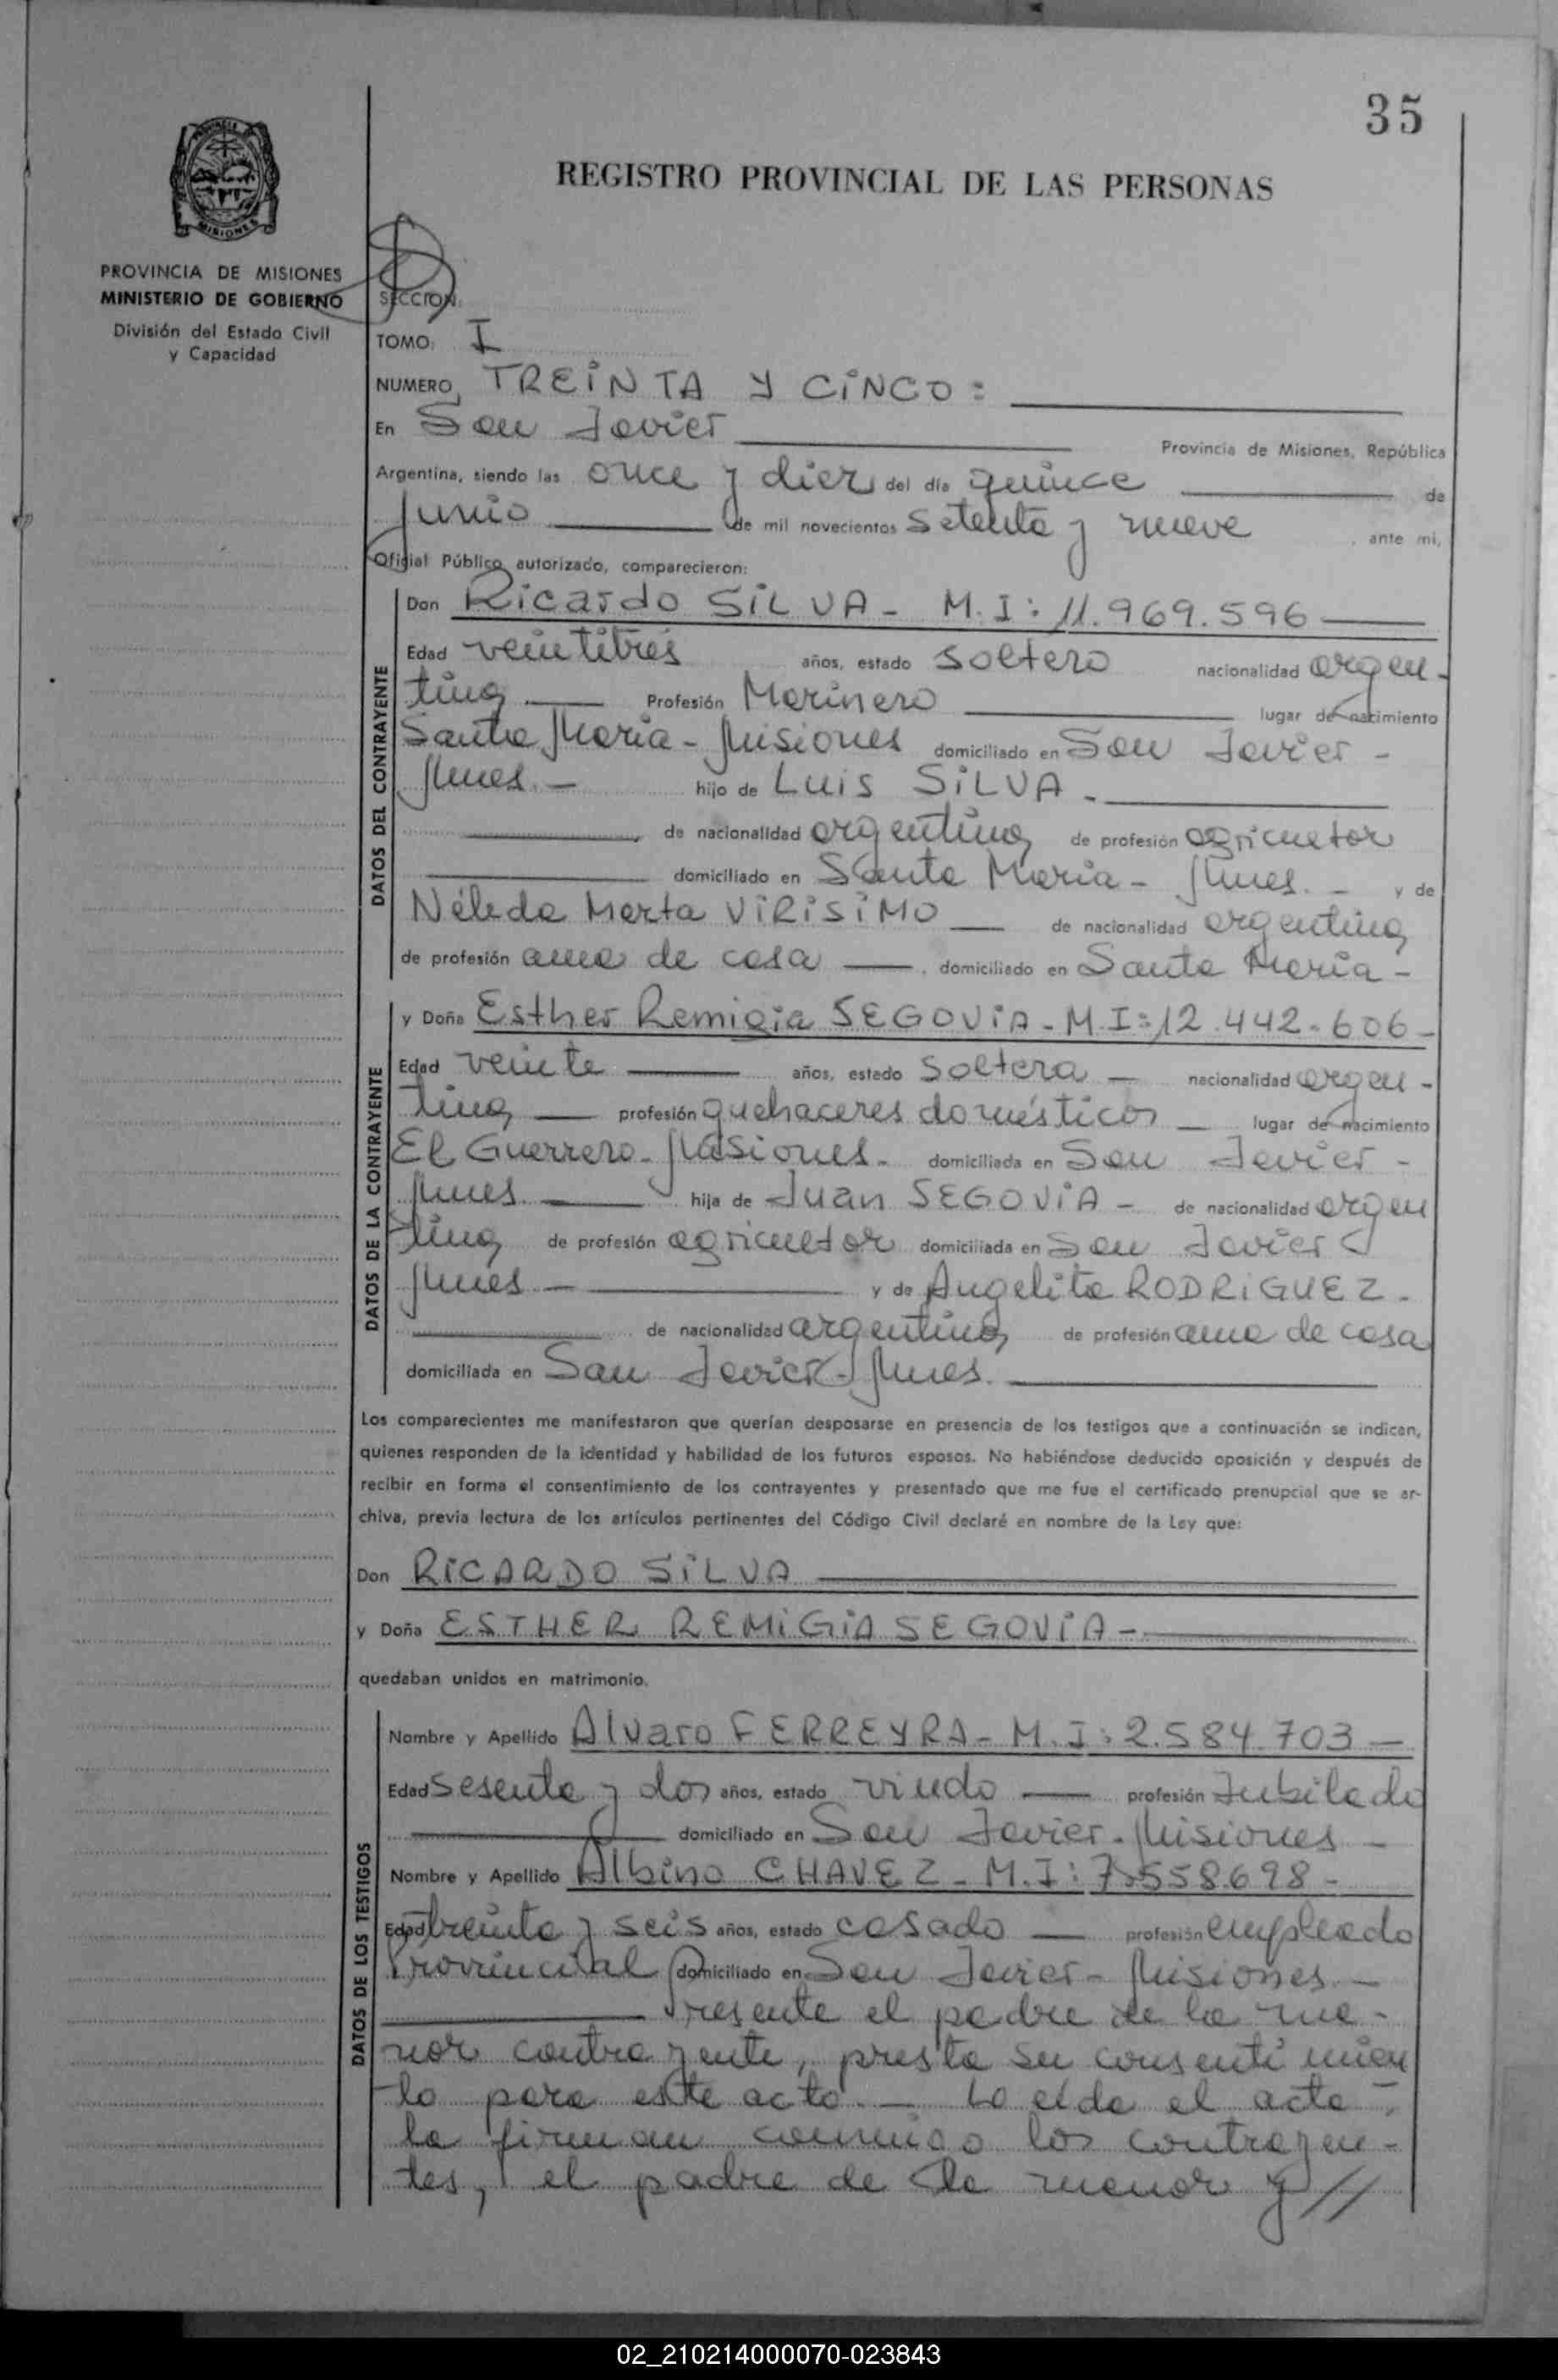 35
REGISTRO PROVINCIAL DE LAS PERSONAS
MISIONES
PROVINCIA DE MISIONES
MINISTERIO DE GOBIERNO
División del Estado Civil
y Capacidad
SECCION:
TOMO: I
NUMERO, TREINTA Y CINCO:
En San Javier Provincia de Misiones, República
Argentina, siendo las once y diez del día quince de
junio de mil novecientos setenta y nueve, ante mi,
Oficial Público autorizado, comparecieron:
DATOS DEL CONTRAYENTE
Don Ricardo SILVA - M.I: 11.969.596
Edad veintitrés años, estado soltero nacionalidad argen-
tina Profesión Marinero lugar de nacimiento
Santa María - Misiones domiciliado en San Javier -
Mnes. - hijo de Luis SILVA -
de nacionalidad argentina de profesión agricultor
domiciliado en Santa María - Mnes. - y de
Nélida Marta VIRISIMO de nacionalidad argentina
de profesión ama de casa, domiciliado en Santa María -
DATOS DE LA CONTRAYENTE
y Doña Esther Remigia SEGOVIA - M.I: 12.442.606 -
Edad veinte años, estado soltera - nacionalidad argen-
tina profesión quehaceres domésticos lugar de nacimiento
El Guerrero - Misiones - domiciliada en San Javier -
Mnes hija de Juan SEGOVIA - de nacionalidad argen
tina de profesión agricultor domiciliada en San Javier
Mnes - y de Angelita RODRIGUEZ -
de nacionalidad argentina de profesión ama de casa
domiciliada en San Javier - Mnes.
Los comparecientes me manifestaron que querían desposarse en presencia de los testigos que a continuación se indican,
quienes responden de la identidad y habilidad de los futuros esposos. No habiéndose deducido oposición y después de
recibir en forma el consentimiento de los contrayentes y presentado que me fue el certificado prenupcial que se ar-
chiva, previa lectura de los artículos pertinentes del Código Civil declaré en nombre de la Ley que:
Don RICARDO SILVA
y Doña ESTHER REMIGIA SEGOVIA -
quedaban unidos en matrimonio.
DATOS DE LOS TESTIGOS
Nombre y Apellido Alvaro FERREYRA - M.I: 2.584.703 -
Edad sesenta y dos años, estado viudo profesión Jubilado
domiciliado en San Javier - Misiones -
Nombre y Apellido Albino CHAVEZ - M.I: 7.558.698 -
Edad treinta y seis años, estado casado profesión empleado
Provincial domiciliado en San Javier - Misiones. -
Presente el padre de la me-
nor contrayente, presta su consentimien
to para este acto. - Leída el acta -,
la firman conmigo los contrayen-
tes, el padre de la menor y //
02_210214000070-023843